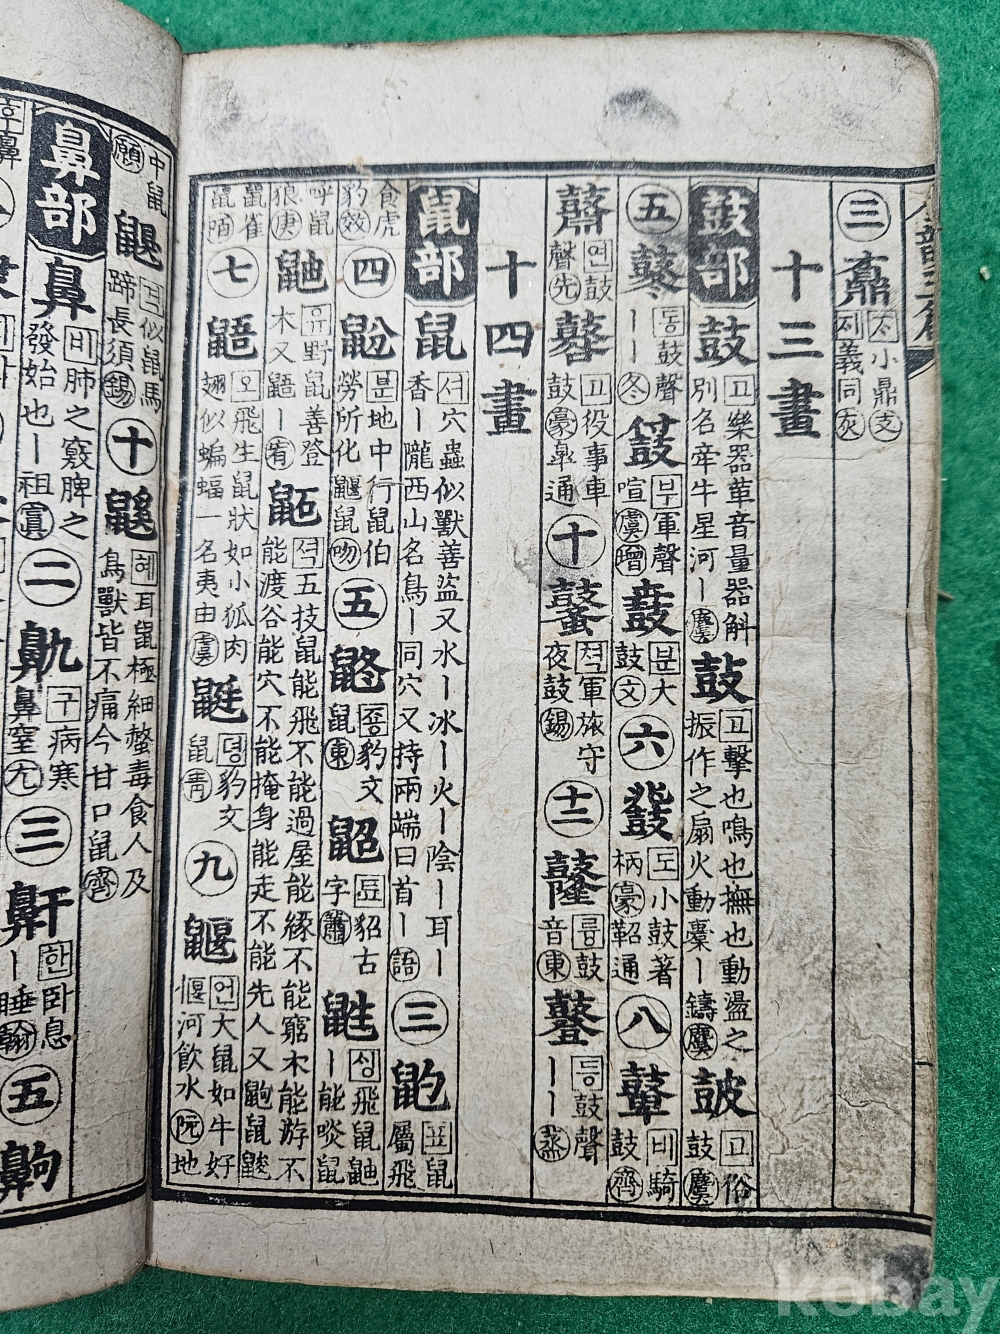 ㊂鼒 ᄌᆡ小鼎支
지義同灰
十三畫
鼓部 鼓 고樂器革音量器斛
別名牽牛星河ー麌 鼔 고擊也鳴也撫也動盪之
振作之扇火動橐ー鑄麌 皷 고俗
鼓麌
五 鼕 동鼓聲
ーー冬 부軍聲
喧虞曾 鼖 분大
鼓文 六 鼗 도小鼓著
柄豪鞀通 八 鼙 비騎
鼓齊
鼘 연鼓
聲先 鼛 고役事車
鼓豪鼛通 十 鼜 쳑軍旅守
夜鼓錫 十二 륭鼓
音東 등鼓聲
ーー蒸
十四畫
鼠部 鼠 셔穴蟲似獸善盜又水ー冰ー火ー陰ー耳ー
香ー隴西山名鳥ー同穴又持兩端曰首ー語 三 鼩 표鼠
屬飛
食虎
豹效 四 鼢 분地中行鼠伯
勞所化鼴鼠吻 五 鼨 죵豹文
鼠東 鼦 됴貂古
字蕭 鼪 싱飛鼠鼬
ー能啖鼠
呼鼠
狼庚 鼬 유野鼠善登
木又鼯ー宥 鼫 셕五技鼠能飛不能過屋能緣不能窮木能游不
能渡谷能穴不能掩身能走不能先人又鼩鼠鼨
鼠雀
鼠陌 七 鼯 오飛生鼠狀如小狐肉
翅似蝙蝠一名夷由虞 鼮 뎡豹文
鼠靑 九 鼴 언大鼠如牛好
偃河飮水阮地
中鼠
願 鼳 격似鼠馬
蹄長須錫 十 鼷 혜耳鼠極細螫毒食人及
鳥獸皆不痛今甘口鼠齊
鼻部 鼻 비肺之竅脾之
發始也ー祖寘 二 鼽 구病寒
鼻窒尤 三 鼾 한卧息
ー睡翰 五 齁
kobay